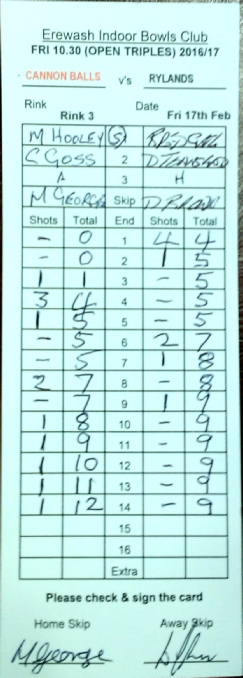 Erewash Indoor Bowls Club
FRI 10.30 (OPEN TRIPLES) 2016/17
CANNON BALLS v's RYLANDS
Rink Date
Rink 3 Fri 17th Feb
M HOOLEY (S)
C GOSS 2
A 3 H
M GEORGE Skip
Shots Total End Shots Total
- 0 1 4 4
- 0 2 1 5
1 1 3 - 5
3 4 4 - 5
1 5 5 - 5
- 5 6 2 7
- 5 7 1 8
2 7 8 - 8
- 7 9 1 9
1 8 10 - 9
1 9 11 - 9
1 10 12 - 9
1 11 13 - 9
1 12 14 - 9
15
16
Extra
Please check & sign the card
Home Skip Away Skip
M George